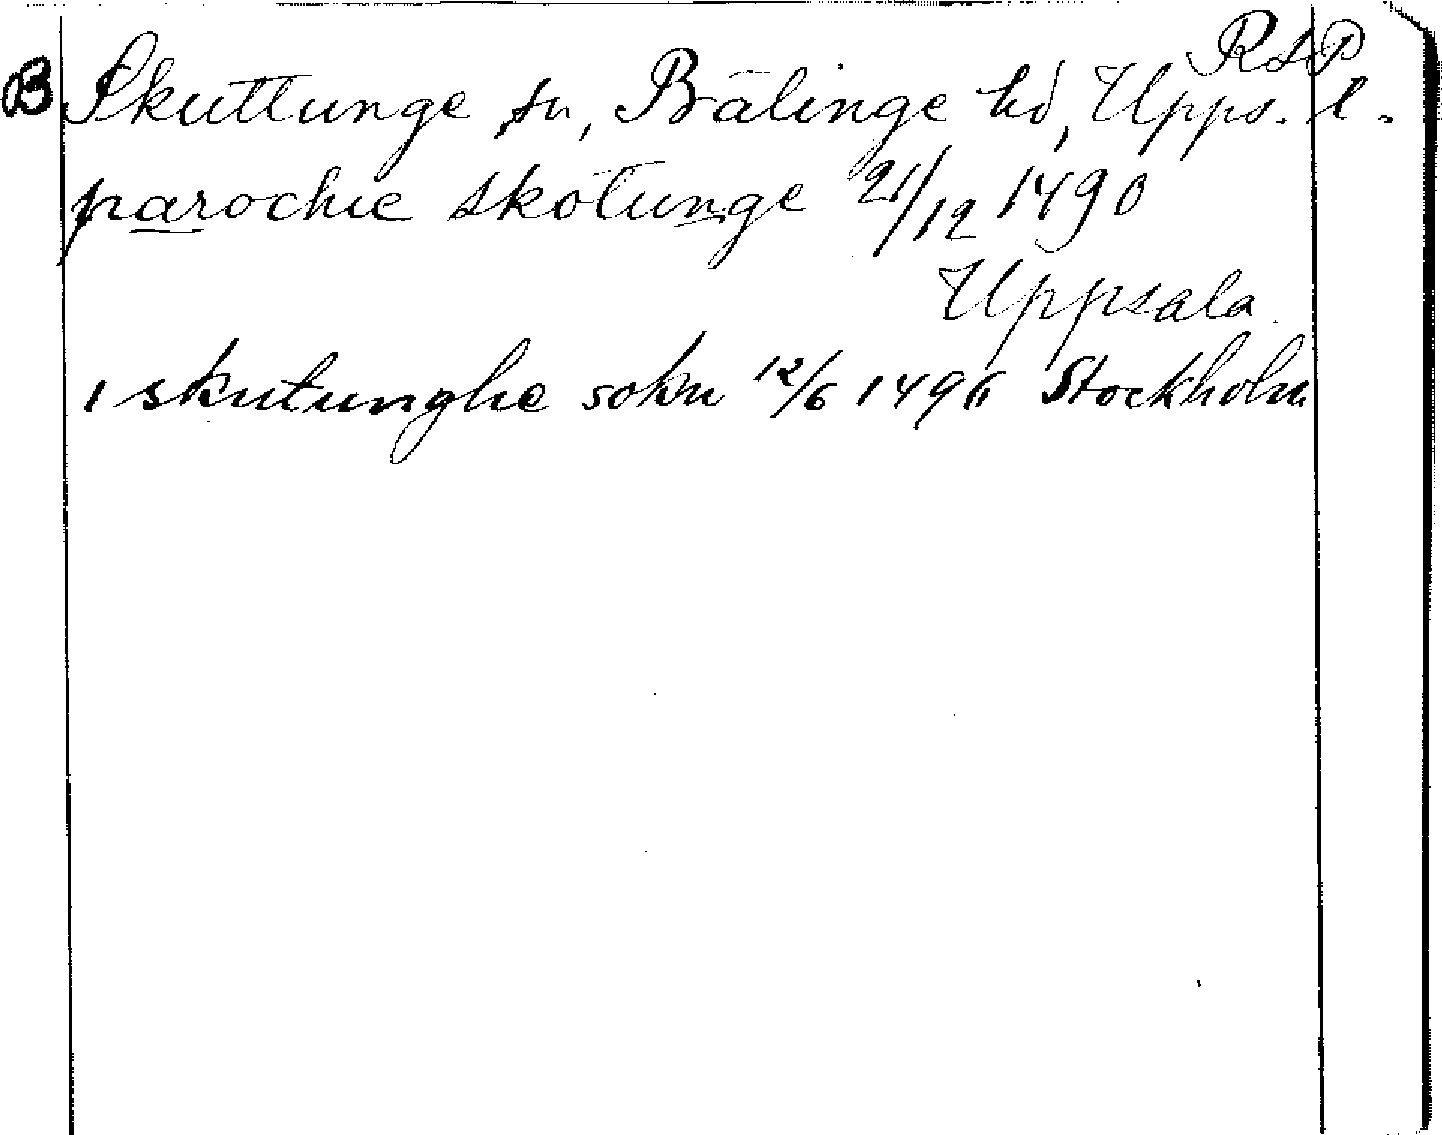 RAP
B Skuttunge sn, Bälinge hd, Upps. l.
parochie skotunge 21/12 1490
Uppsala
i skutunghe sokn 12/6 1496 Stockholm